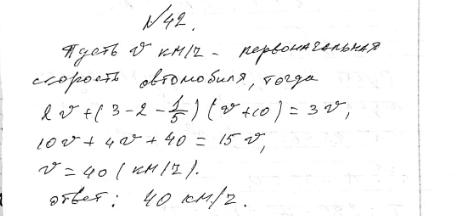 №42.
Пусть v км/ч - первоначальная
скорость автомобиля, тогда
2v+(3-2-1/5)(v+10)=3v,
10v+4v+40=15v,
v=40(км/ч).
ответ: 40 км/ч.